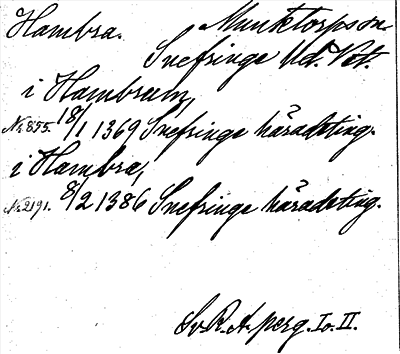 Hambra. Munktorp sn
Snefringe Hd. Vst.
i Hambrum,
No. 855. 18/1 1369 Snefringe häradsting.
i Hambra,
No. 2191. 8/2 1386 Snefringe häradsting.
Sv. R. A. perg. I o. II.